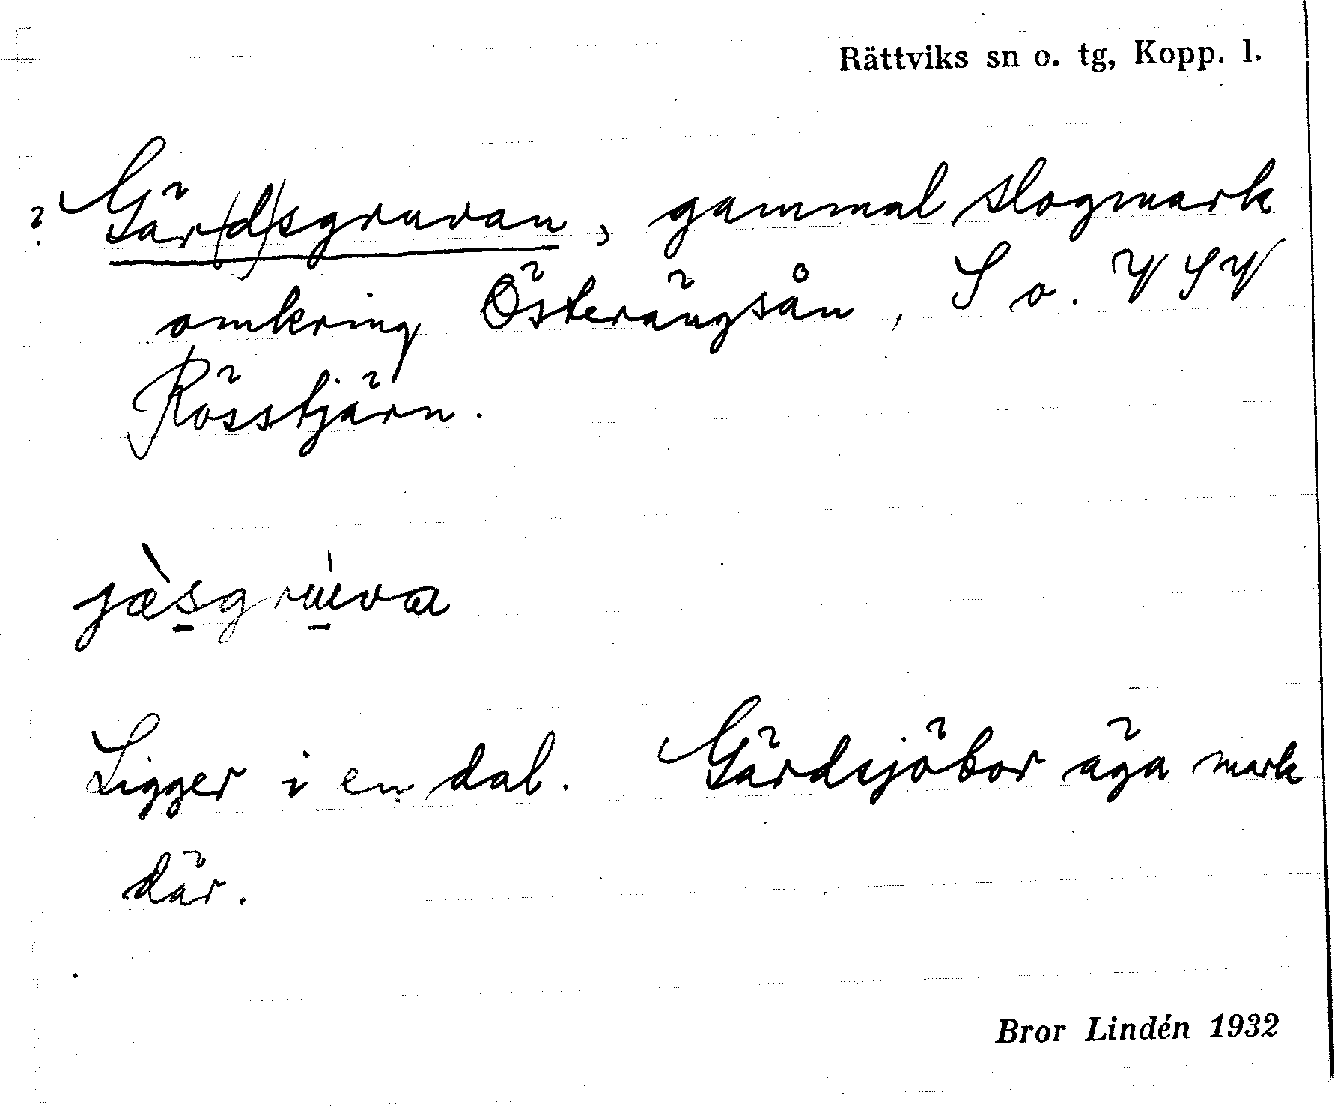 Rättviks sn o. tg, Kopp. l.
? Gär(d)sgruvan, gammal slogmark
omkring Österängsån, S o. VSV
Rösstjärn.
jæ̀sgrùva
Ligger i en dal. Gärdsjöbor äga mark
där.
Bror Lindén 1932